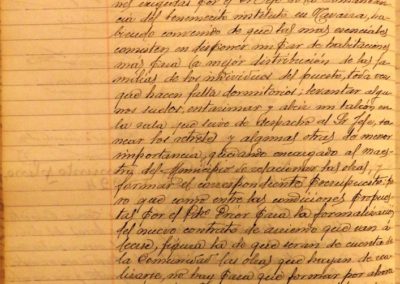 nes exigidas por el Sr. Jefe de la Comandan-
cia del benemérito instituto en Navarra, ha-
biendo convenido de que las mas esenciales
consisten en disponer un par de habitaciones
mas para la mejor distribución de las fa-
milias de los individuos del puesto, toda vez
que hacen falta dormitorios; levantar algu-
nos suelos, entarimar y abrir un balcón en
la sala que sirve de despacho al Sr. Jefe, to-
nar los retretes y algunas otras de menor
importancia, quedando encargado al maes-
tro del Municipio de relacionar las obras y
formar el correspondiente presupuesto, pe-
ro que como entre las condiciones propues-
tas por el Pdre Prior para la formalizacion
del nuevo contrato de arriendo que van á
hacerse, figura la de que serán de cuenta de
la Comunidad las obras que hayan de rea-
lizarse, no hay para que formar por ahora